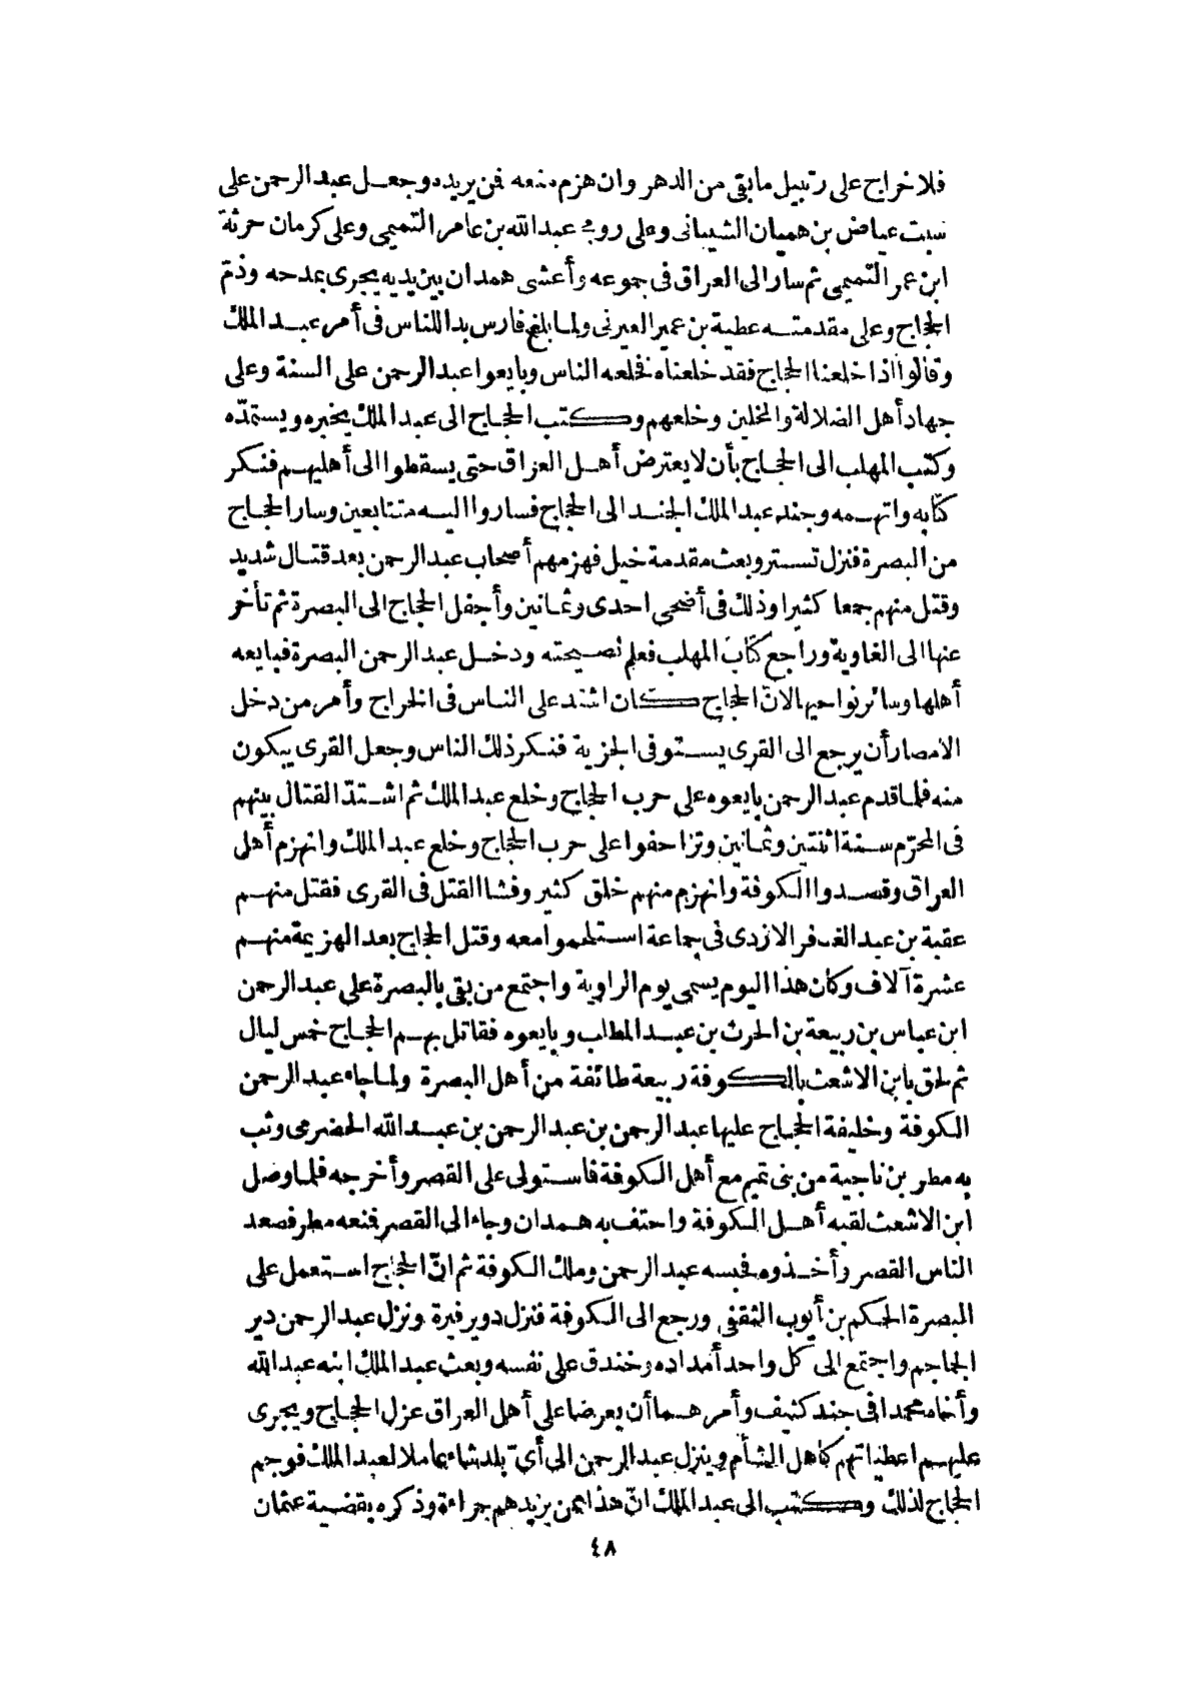 فلاخراج على رتبيل مابقى من الدهر وان هزم منعه فمن يريده وجعل عبد الرحمن على
سبت عياض بن هميان الشيبانى وعلى روبح عبد الله بن عامر التميمى وعلى كرمان حرثة
ابن عمر التميمى ثم سار الى العراق فى جموعه وأعشى همدان بين يديه يجرى بمدحه وذم
الحجاج وعلى مقدمته عطية بن عمير العيرنى ولما بلغ فارس بدا للناس فى أمر عبد الملك
وقالوا اذا خلعنا الحجاج فقد خلعناه فخلعه الناس وبايعوا عبد الرحمن على السنة وعلى
جهاد أهل الضلالة والمخلين وخلعهم وكتب الحجاج الى عبد الملك يخبره ويستمدّه
وكتب المهلب الى الحجاج بأن لا يعترض أهل العراق حتى يسقطوا الى أهليهم فنكر
كتابه واتهمه وجند عبد الملك الجند الى الحجاج فساروا اليه متتابعين وسار الحجاج
من البصرة فنزل تستر وبعث مقدمة خيل فهزمهم أصحاب عبد الرحمن بعد قتال شديد
وقتل منهم جمعا كثيرا وذلك فى أضحى احدى وثمانين وأجفل الحجاج الى البصرة ثم تأخر
عنها الى الغاوية وراجع كتاب المهلب فعلم نصيحته ودخل عبد الرحمن البصرة فبايعه
أهلها وسائر نواحيها لانّ الحجاج كان اشتد على الناس فى الخراج وأمر من دخل
الامصار أن يرجع الى القرى يستوفى الجزية فنكر ذلك الناس وجعل القرى يبكون
منه فلما قدم عبد الرحمن بايعوه على حرب الحجاج وخلع عبد الملك ثم اشتدّ القتال بينهم
فى المحرّم سنة اثنتين وثمانين وتزاحفوا على حرب الحجاج وخلع عبد الملك وانهزم أهل
العراق وقصدوا الكوفة وانهزم منهم خلق كثير وفشا القتل فى القرى فقتل منهم
عقبة بن عبد الغافر الازدى فى جماعة استلحموا معه وقتل الحجاج بعد الهزيمة منهم
عشرة آلاف وكان هذا اليوم يسمى يوم الراوية واجتمع من بقى بالبصرة على عبد الرحمن
ابن عباس بن ربيعة بن الحرث بن عبد المطلب وبايعوه فقاتل بهم الحجاج خمس ليال
ثم لحق بابن الاشعث بالكوفة ربيعة طائفة من أهل البصرة ولما جاء عبد الرحمن
الكوفة وخليفة الحجاج عليها عبد الرحمن بن عبد الرحمن بن عبد الله الحضرمى وثب
به مطر بن ناجية من بنى تميم مع أهل الكوفة فاستولى على القصر وأخرجه فلما وصل
ابن الاشعث لقيه أهل الكوفة واحتف به همدان وجاء الى القصر فمنعه مطر فصعد
الناس القصر وأخذوه فحبسه عبد الرحمن وملك الكوفة ثم انّ الحجاج استعمل على
البصرة الحكم بن أيوب الثقفى ورجع الى الكوفة فنزل دوير فيرة ونزل عبد الرحمن دير
الجماجم واجتمع الى كل واحد أمداده وخندق على نفسه وبعث عبد الملك ابنه عبد الله
وأخاه محمدا فى جند كثيف وأمرهما أن يعرضا على أهل العراق عزل الحجاج ويجرى
عليهم اعطياتهم كأهل الشأم وينزل عبد الرحمن الى أىّ بلد شاء عاملا لعبد الملك فوجم
الحجاج لذلك وكتب الى عبد الملك انّ هذا ممن يزيدهم جراءة وذكره بقضية عثمان
٤٨